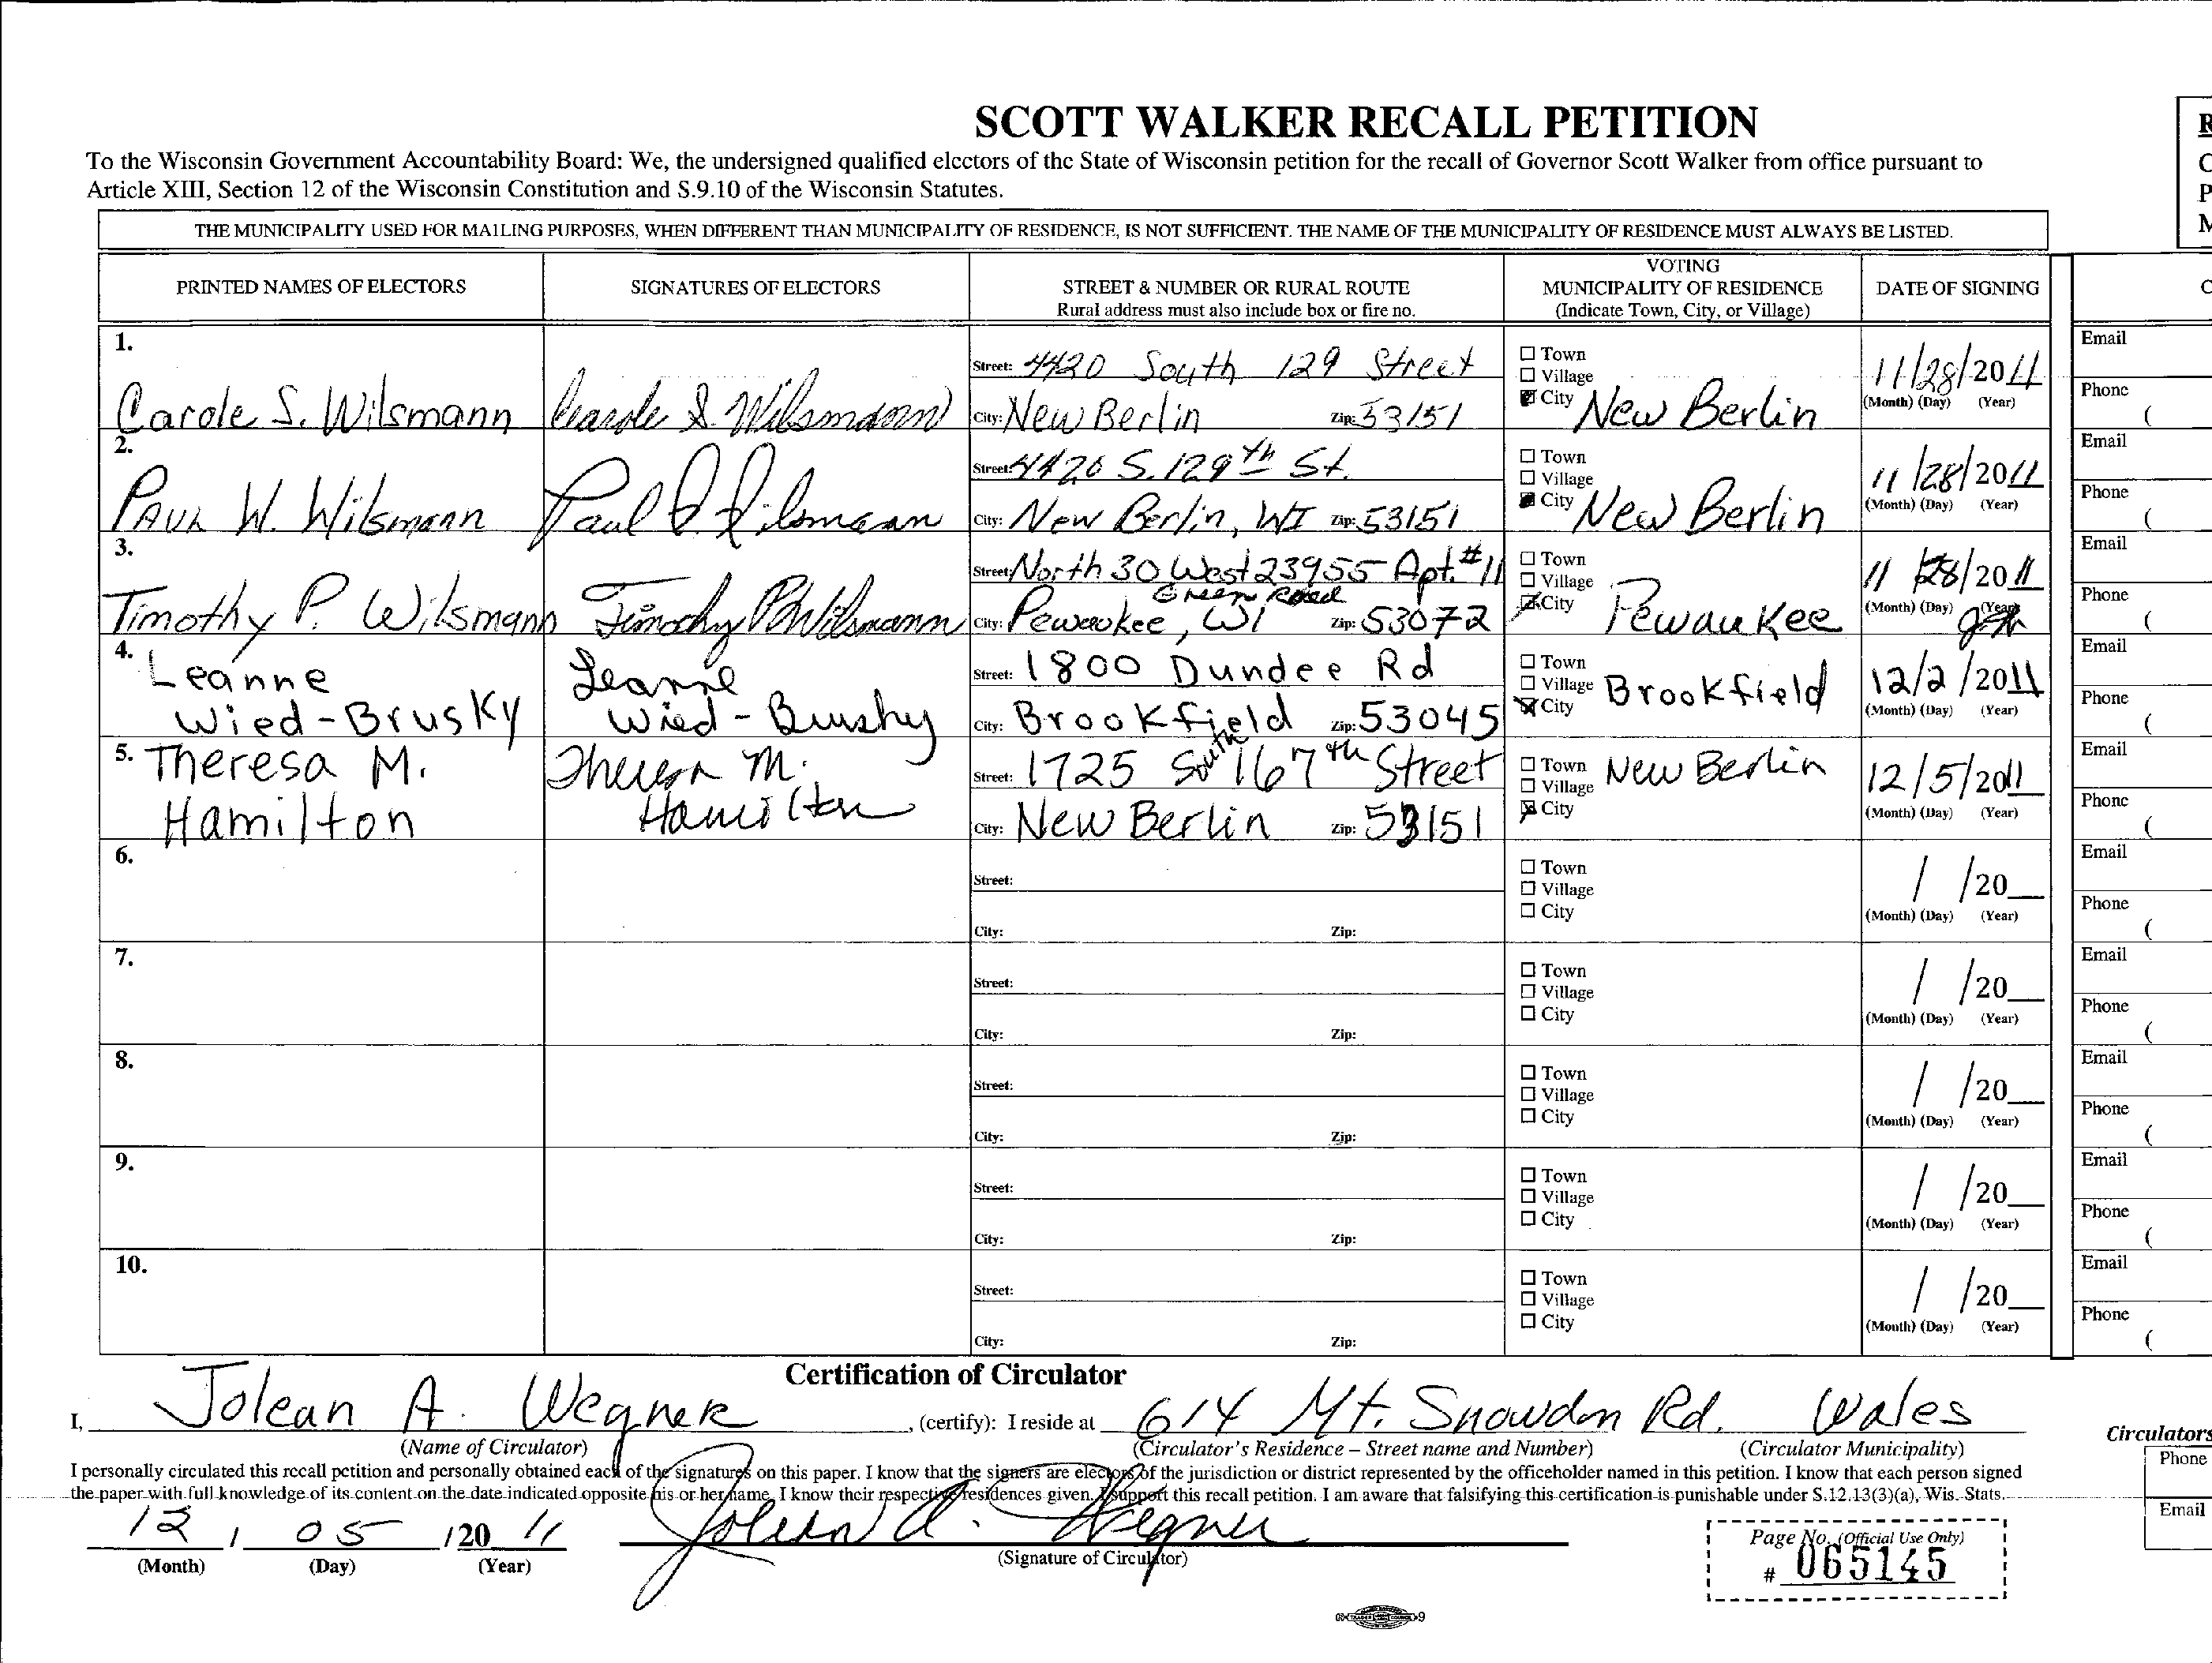 SCOTT WALKER RECALL PETITION
To the Wisconsin Government Accountability Board: We, the undersigned qualified electors of the State of Wisconsin petition for the recall of Governor Scott Walker from office pursuant to
Article XIII, Section 12 of the Wisconsin Constitution and S.9.10 of the Wisconsin Statutes.
THE MUNICIPALITY USED FOR MAILING PURPOSES, WHEN DIFFERENT THAN MUNICIPALITY OF RESIDENCE, IS NOT SUFFICIENT. THE NAME OF THE MUNICIPALITY OF RESIDENCE MUST ALWAYS BE LISTED.
PRINTED NAMES OF ELECTORS
SIGNATURES OF ELECTORS
STREET & NUMBER OR RURAL ROUTE
Rural address must also include box or fire no.
VOTING
MUNICIPALITY OF RESIDENCE
(Indicate Town, City, or Village)
DATE OF SIGNING
1.
Carole S. Wilsmann
Carole S. Wilsmann
Street: 4420 South 129 Street
City: New Berlin Zip: 53151
Town
Village
City New Berlin
11/28/2011
(Month) (Day) (Year)
Email
Phone
(
2.
Paul W. Wilsmann
Paul W. Wilsmann
Street: 4420 S. 129th St.
City: New Berlin, WI Zip: 53151
Town
Village
City New Berlin
11/28/2011
(Month) (Day) (Year)
Email
Phone
(
3.
Timothy P. Wilsmann
Timothy P Wilsmann
Street: North 30 West 23955 Apt. #11
Green Road
City: Pewaukee, WI Zip: 53072
Town
Village
City Pewaukee
11/28/2011
(Month) (Day) (Year)
Email
Phone
(
4.
Leanne
Wied-Brusky
Leanne
Wied-Brusky
Street: 1800 Dundee Rd
City: Brookfield Zip: 53045
Town
Village Brookfield
City
12/2/2011
(Month) (Day) (Year)
Email
Phone
(
5. Theresa M.
Hamilton
Theresa M.
Hamilton
Street: 1725 South 167th Street
City: New Berlin Zip: 53151
Town New Berlin
Village
City
12/5/2011
(Month) (Day) (Year)
Email
Phone
(
6.
Street:
City: Zip:
Town
Village
City
/ /20
(Month) (Day) (Year)
Email
Phone
(
7.
Street:
City: Zip:
Town
Village
City
/ /20
(Month) (Day) (Year)
Email
Phone
(
8.
Street:
City: Zip:
Town
Village
City
/ /20
(Month) (Day) (Year)
Email
Phone
(
9.
Street:
City: Zip:
Town
Village
City
/ /20
(Month) (Day) (Year)
Email
Phone
(
10.
Street:
City: Zip:
Town
Village
City
/ /20
(Month) (Day) (Year)
Email
Phone
(
Certification of Circulator
I, Jolean A. Wegner, (certify): I reside at 614 Mt. Snowdon Rd. Wales
(Name of Circulator) (Circulator's Residence – Street name and Number) (Circulator Municipality)
I personally circulated this recall petition and personally obtained each of the signatures on this paper. I know that the signers are electors of the jurisdiction or district represented by the officeholder named in this petition. I know that each person signed
the paper with full knowledge of its content on the date indicated opposite his or her name. I know their respective residences given. I support this recall petition. I am aware that falsifying this certification is punishable under S.12.13(3)(a), Wis. Stats.
12 / 05 /20 11
(Month) (Day) (Year)
Jolean A. Wegner
(Signature of Circulator)
Page No. (Official Use Only)
# 065145
Circulators
Phone
Email